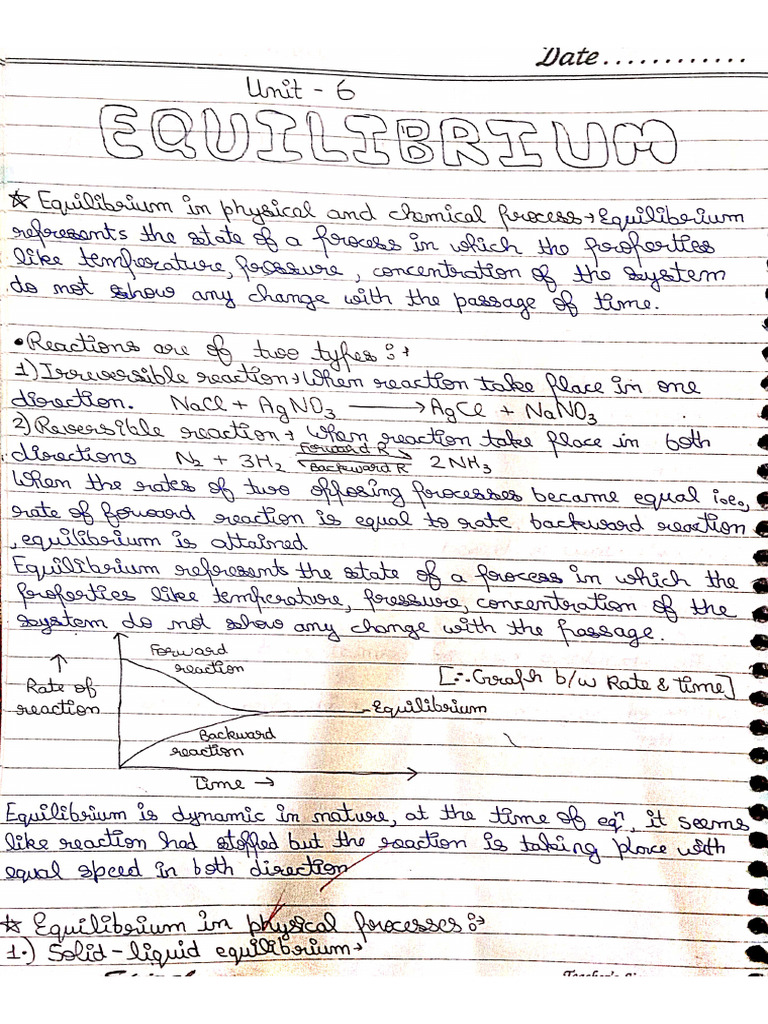 Date............
Unit - 6
EQUILIBRIUM
☆ Equilibrium in physical and chemical process→Equilibrium
represents the state of a process in which the properties
like temperature, pressure, concentration of the system
do not show any change with the passage of time.
•Reactions are of two types:→
1) Irreversible reaction→When reaction take place in one
direction. NaCl + AgNO₃ ⟶ AgCl + NaNO₃
2) Reversible reaction→ When reaction take place in both
directions N₂ + 3H₂ Forward R ⇌ Backward R 2NH₃
When the rates of two opposing processes became equal i.e.,
rate of forward reaction is equal to rate backward reaction
, equilibrium is attained
Equilibrium represents the state of a process in which the
properties like temperature, pressure, concentration of the
system do not show any change with the passage.
Forward
reaction
↑
Rate of
reaction
[∴ Graph b/w Rate & time]
Equilibrium
Backward
reaction
Time →
Equilibrium is dynamic in nature, at the time of eqⁿ, it seems
like reaction had stopped but the reaction is taking place with
equal speed in both direction
☆ Equilibrium in physical processes:→
1.) Solid-liquid equilibrium→